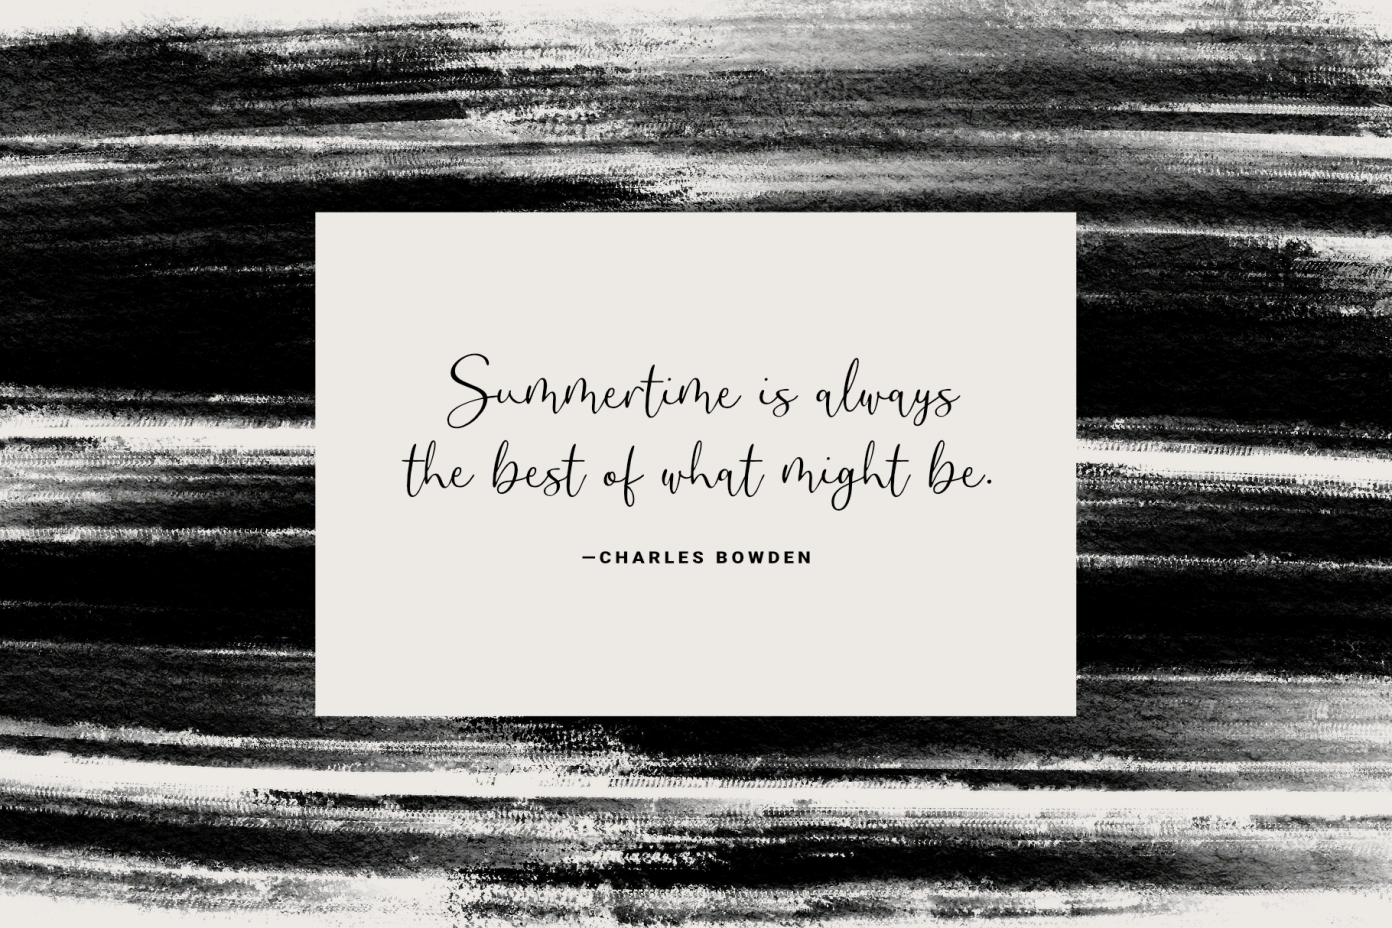 Summertime is always
the best of what might be.
—CHARLES BOWDEN